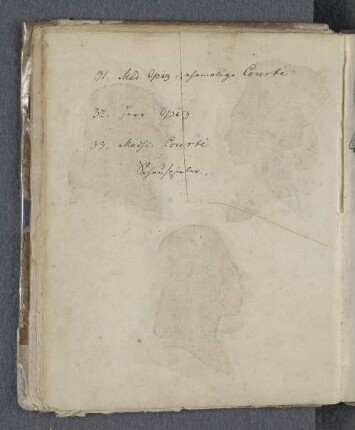 31. Mad. Opiz, ehemalige Courté
32. Herr Opiz
33. Madsl. Courté
Schauspieler.